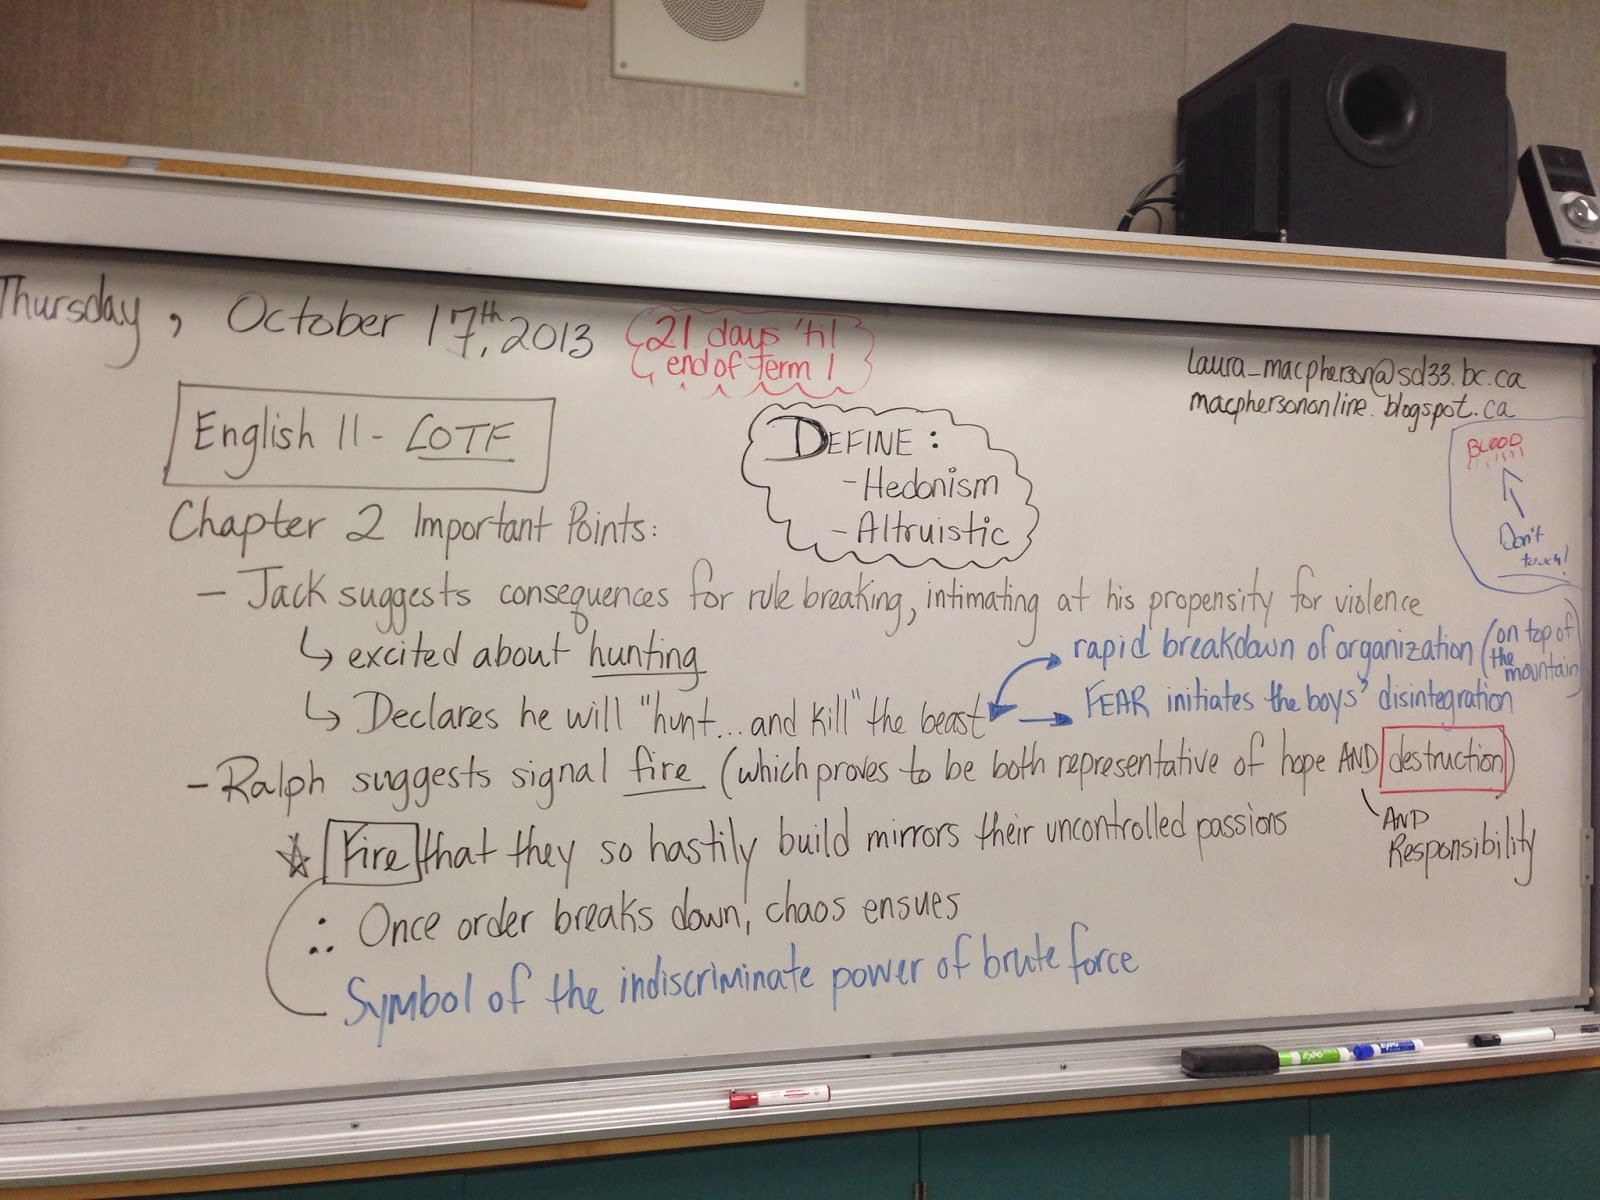 Thursday, October 17th, 2013
21 days 'til
end of Term 1
laura_macpherson@sd33.bc.ca
macphersononline.blogspot.ca
English 11 - LOTF
DEFINE:
- Hedonism
- Altruistic
BLOOD
Don't
touch!
Chapter 2 Important Points:
- Jack suggests consequences for rule breaking, intimating at his propensity for violence
↳ excited about hunting
rapid breakdown of organization (on top of
the
mountain)
↳ Declares he will "hunt... and kill" the beast
FEAR initiates the boys' disintegration
- Ralph suggests signal fire (which proves to be both representative of hope AND destruction)
AND
Responsibility
☆ Fire that they so hastily build mirrors their uncontrolled passions
∴ Once order breaks down, chaos ensues
Symbol of the indiscriminate power of brute force
EXPO
EXPO